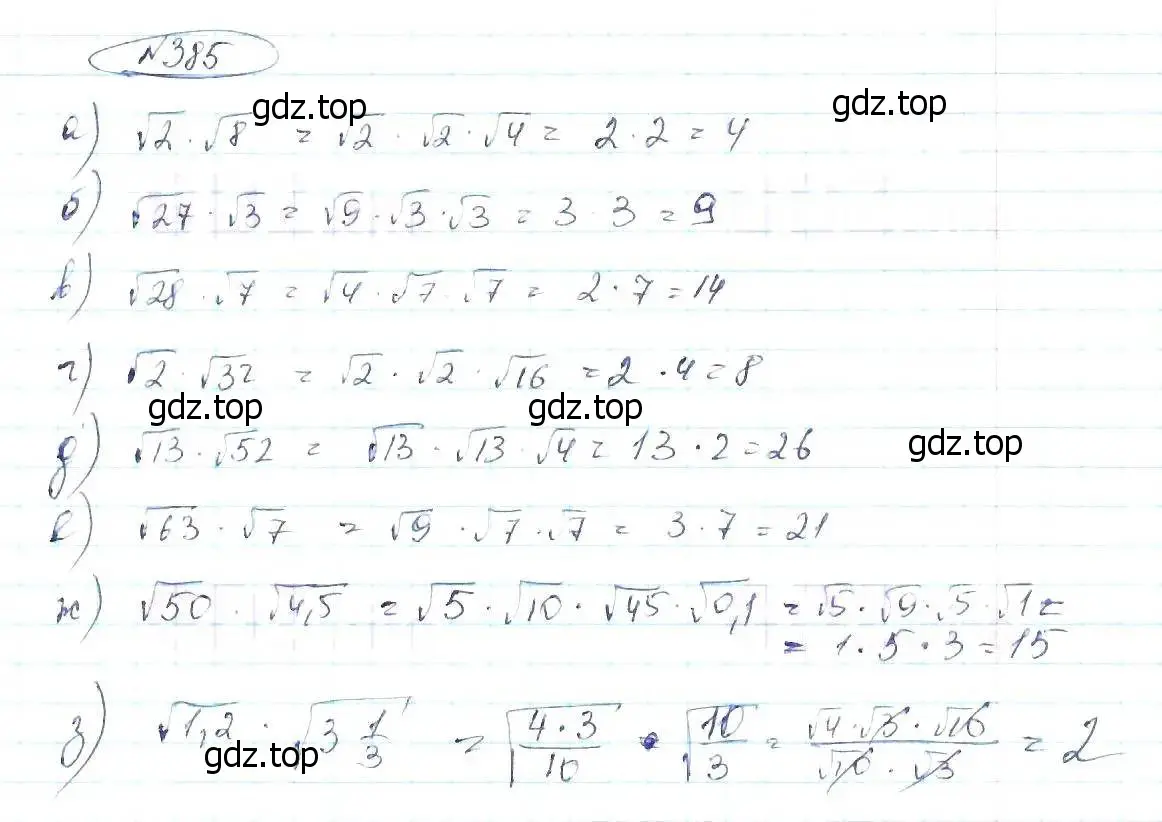 №385
gdz.top gdz.top
а) √2 · √8 = √2 · √2 · √4 = 2 · 2 = 4
б) √27 · √3 = √9 · √3 · √3 = 3 · 3 = 9
в) √28 · √7 = √4 · √7 · √7 = 2 · 7 = 14
г) √2 · √32 = √2 · √2 · √16 = 2 · 4 = 8
gdz.top gdz.top
д) √13 · √52 = √13 · √13 · √4 = 13 · 2 = 26
gdz.top
е) √63 · √7 = √9 · √7 · √7 = 3 · 7 = 21
ж) √50 · √4,5 = √5 · √10 · √45 · √0,1 = √5 · √9 · √5 · √1 =
= 1 · 5 · 3 = 15
з) √1,2 · √(3 1/3) = √(4 · 3/10) · √(10/3) = (√4 · √3 · √10)/(√10 · √3) = 2
gdz.top